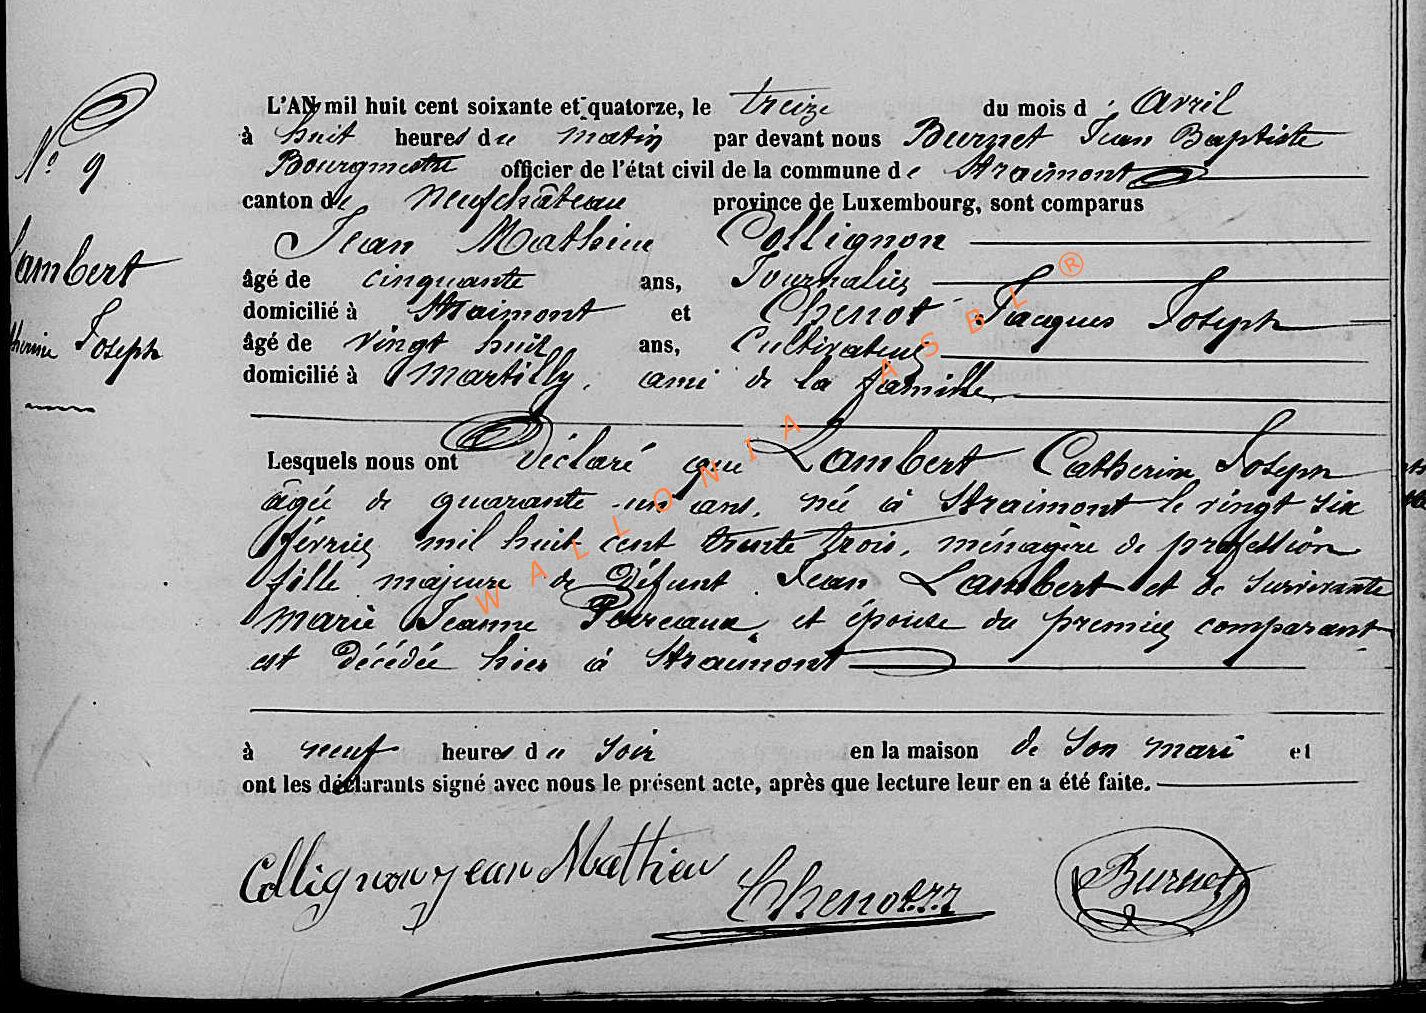 N° 9
Lambert
Joseph
L'AN mil huit cent soixante et quatorze, le treize du mois d' Avril
à huit heures du matin par devant nous Burnet Jean Baptiste
Bourgmestre officier de l'état civil de la commune de Straimont
canton de Neufchâteau province de Luxembourg, sont comparus
Jean Mathieu Collignon
âgé de cinquante ans, Journalier
domicilié à Straimont et Chenot Jacques Joseph
âgé de vingt huit ans, Cultivateur
domicilié à Martilly, ami de la famille
Lesquels nous ont Déclaré que Lambert Catherine Joseph
âgée de quarante-un ans, née à Straimont le vingt six
février mil huit cent trente trois, ménagère de profession
fille majeure de Défunt Jean Lambert et de Survivante
Marie Jeanne, et épouse du premier comparant
est Décédée hier à Straimont
à neuf heures du soir en la maison de son mari et
ont les déclarants signé avec nous le présent acte, après que lecture leur en a été faite.
Collignon jean Mathieu
Chenot JJ
Burnet
WALLONIA ASBL ®